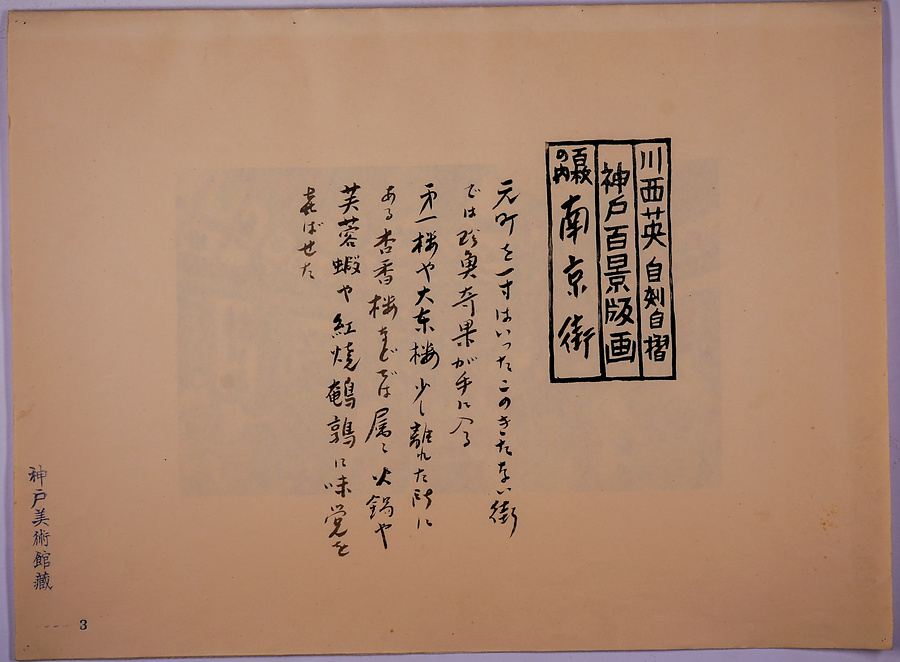 川西英 自刻自摺
神戸百景版画
百枚の内 南京街
元町を一寸はいったこのきたない街
では珍魚奇果が手に入る
第一楼や大東楼少し離れた所に
ある杏香楼などでは屡々火鍋や
芙蓉蝦や紅焼鵪鶉に味覚を
喜ばせた
神戸美術館蔵
3